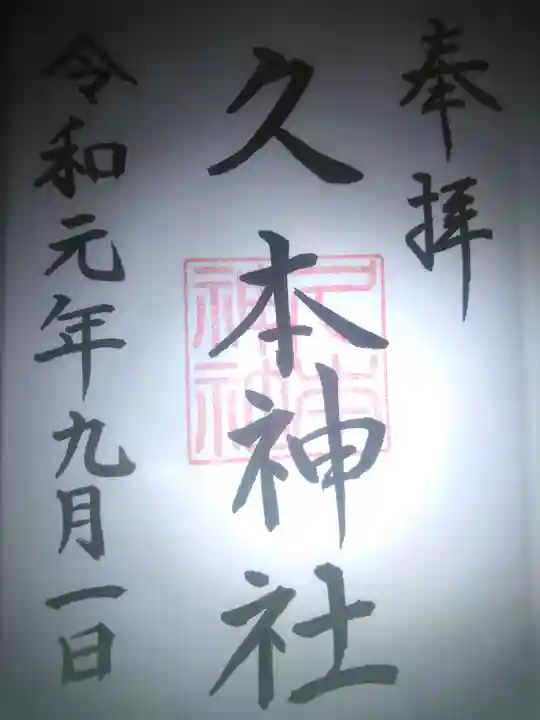 奉拝
久本神社
令和元年九月一日